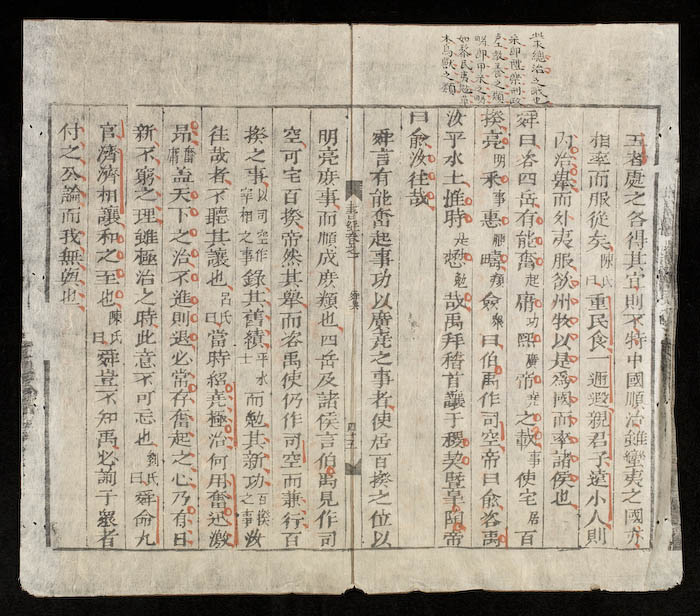 采即禮樂刑政
教養之類
木鳥獸之類
五者處之各得其宜則不特中國順治雖蠻夷之國亦
相率而服從矣陳氏曰重民食一邇遐親君子遠小人則
內治舉而外夷服欲州牧以是爲國而率諸侯也
舜曰咨四岳有能奮起庸功熙廣帝堯之載事使宅居百
揆亮明采事惠順疇類僉衆曰伯禹作司空帝曰俞咨禹
汝平水土惟時是懋勉哉禹拜稽首讓于稷契曁皐陶帝
曰俞汝往哉
舜言有能奮起事功以廣堯之事者使居百揆之位以
書經卷之一
明亮庶事而順成庶類也四岳及諸侯言伯禹見作司
空可宅百揆帝然其舉而咨禹使仍作司空而兼行百
揆之事以司空作宰相之事錄其舊績平水土而勉其新功百揆之事汝
往哉者不聽其讓也呂氏曰當時紹堯極治何用奮迅激
昻奮庸蓋天下之治不進則退必常存奮起之心乃有日
新不窮之理雖極治之時此意不可忘也劉氏曰舜命九
官濟濟相讓和之至也陳氏曰舜豈不知禹必詢于衆者
付之公論而我無與也